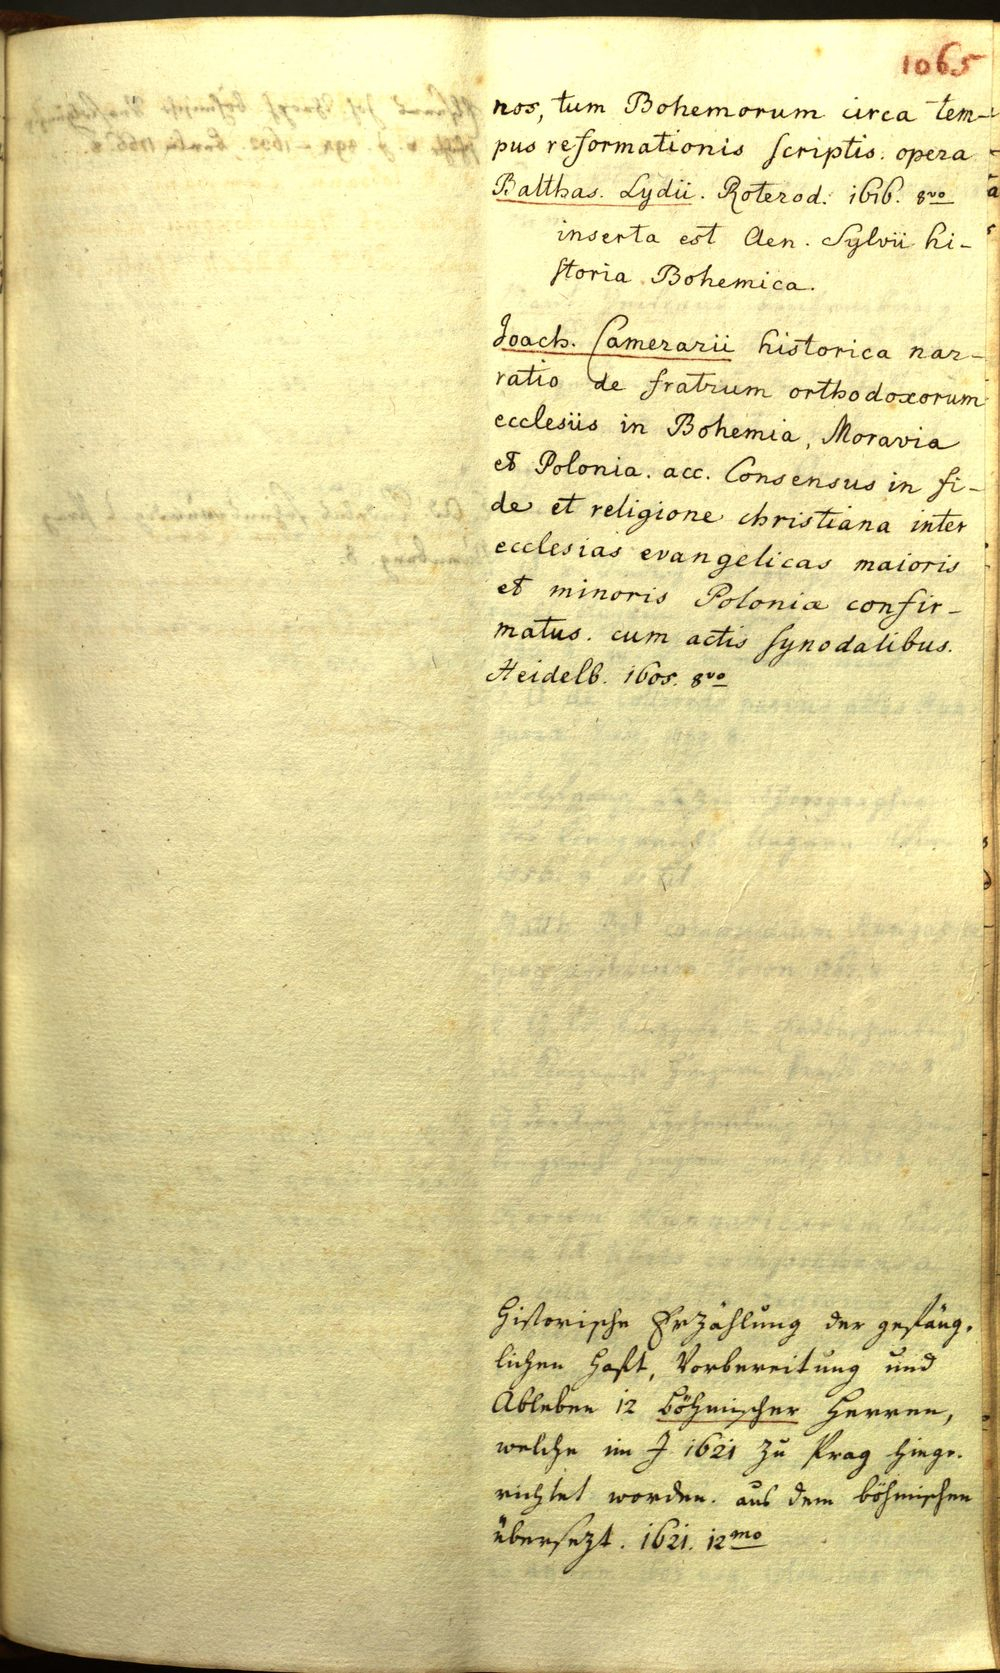 1065
nos, tum Bohemorum circa tem-
pus reformationis scriptis. opera
Balthas. Lydii. Roterod. 1616. 8vo
inserta est Aen. Sylvii hi-
storia Bohemica.
Joach. Camerarii historica nar-
ratio de fratrum orthodoxorum
ecclesiis in Bohemia, Moravia
et Polonia. acc. Consensus in fi-
de et religione christiana inter
ecclesias evangelicas maioris
et minoris Poloniæ confir-
matus. cum actis synodalibus.
Heidelb. 1605. 8vo
Historische Erzählung der gefäng-
lichen Haft, Vorbereitung und
Ableben 12 böhmischer Herren,
welche im J 1621 zu Prag hinge-
richtet worden. aus dem böhmischen
übersezt. 1621. 12mo